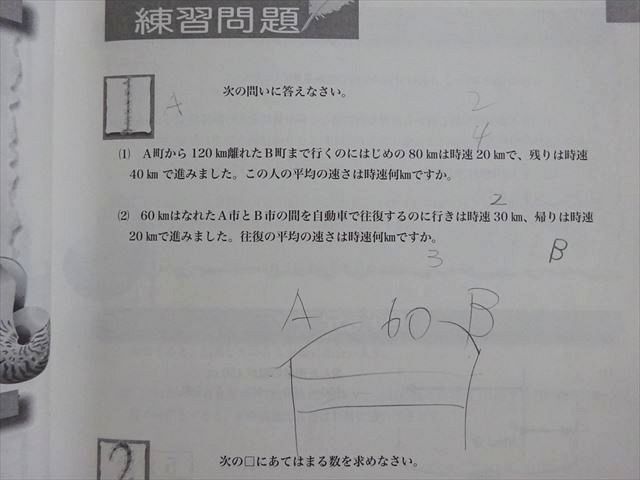 練習問題
1
A
次の問いに答えなさい。
2
4
⑴ A町から120㎞離れたB町まで行くのにはじめの80㎞は時速20㎞で、残りは時速
40㎞で進みました。この人の平均の速さは時速何㎞ですか。
2
⑵ 60㎞はなれたA市とB市の間を自動車で往復するのに行きは時速30㎞、帰りは時速
20㎞で進みました。往復の平均の速さは時速何㎞ですか。
3
B
A 60 B
2
次の□にあてはまる数を求めなさい。